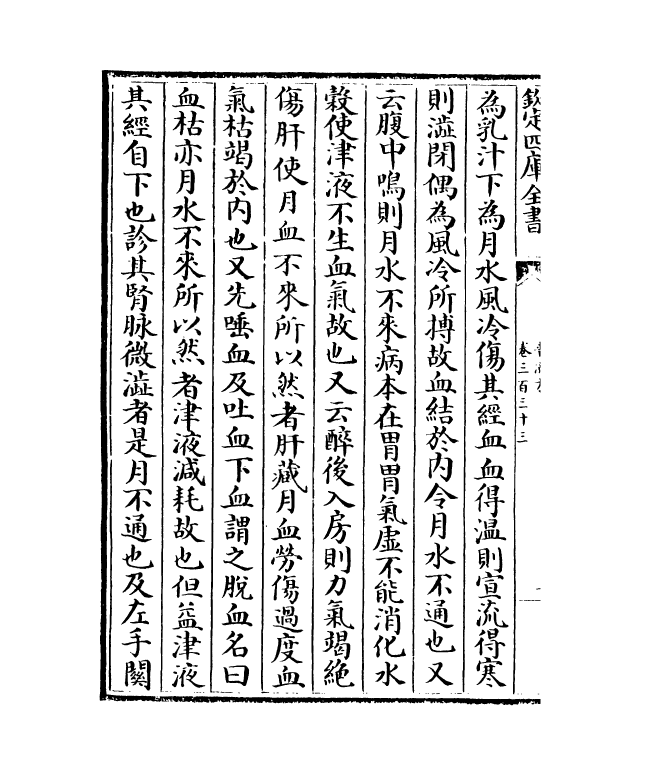 欽定四庫全書
卷三百三十三
為乳汁下為月水風冷傷其經血血得温則宣流得寒
則澁閉偶為風冷所搏故血結於内令月水不通也又
云腹中鳴則月水不來病本在胃胃氣虛不能消化水
榖使津液不生血氣故也又云醉後入房則力氣竭絶
傷肝使月血不來所以然者肝藏月血勞傷過度血
氣枯竭於内也又先唾血及吐血下血謂之脫血名曰
血枯亦月水不來所以然者津液減耗故也但益津液
其經自下也診其腎脉微澁者是月不通也及左手關